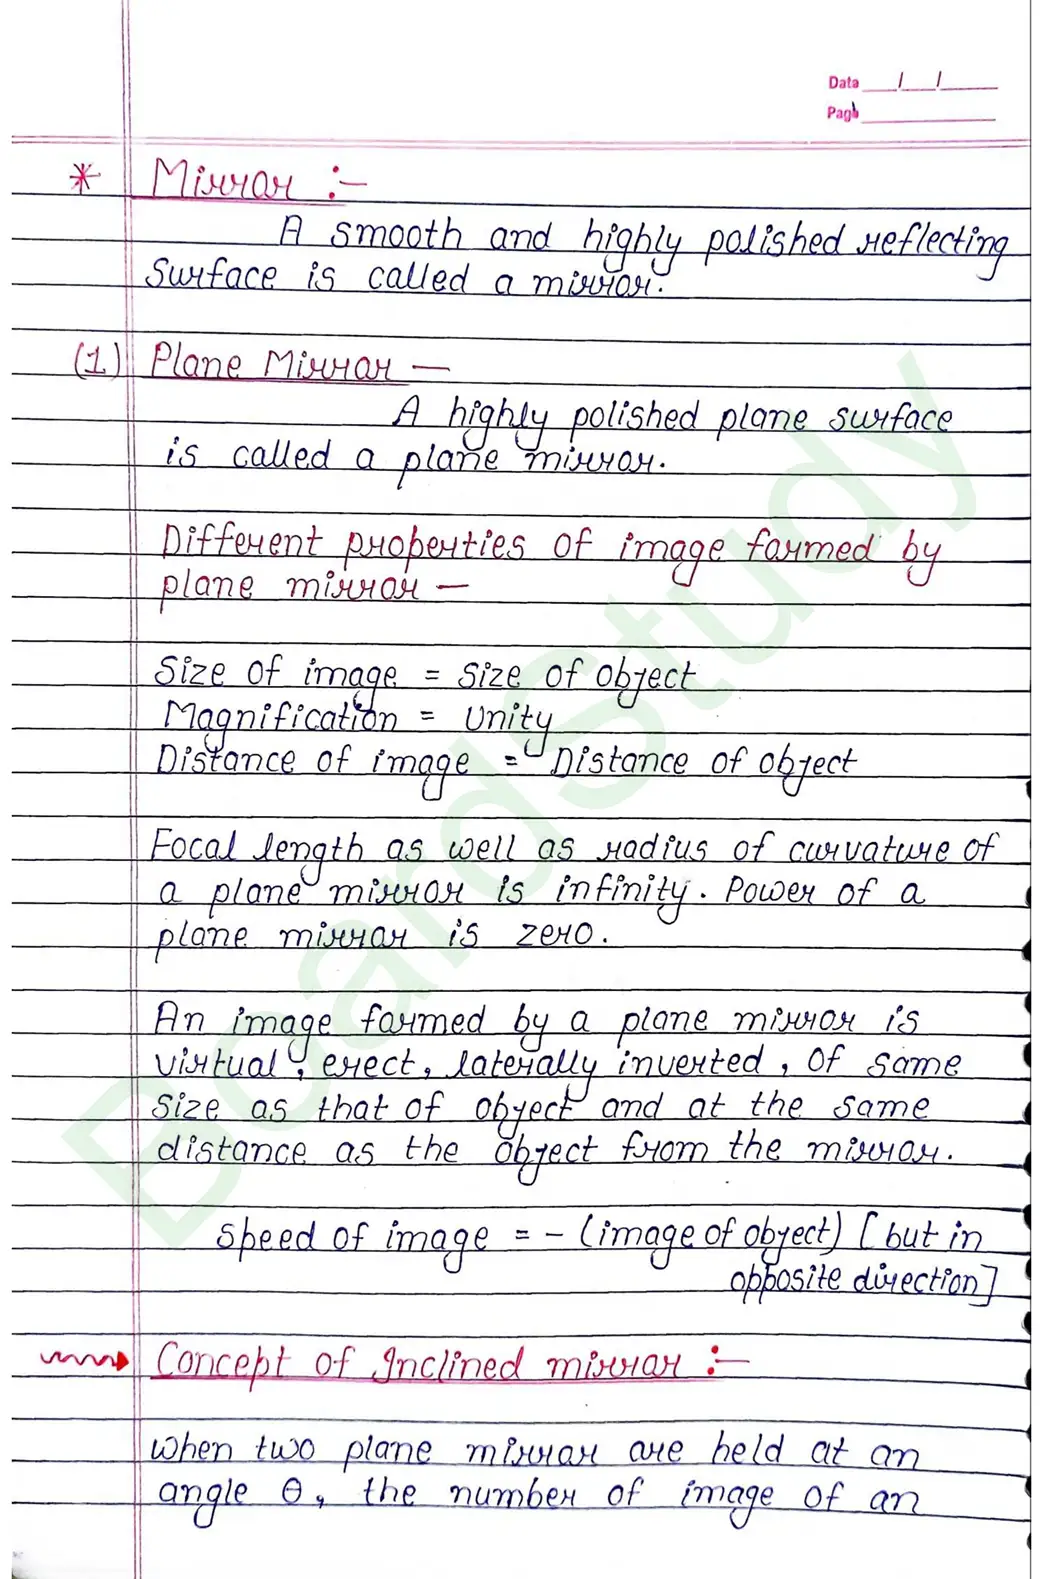 Data __/__/__
Page
* Mirror :-
A smooth and highly polished reflecting
surface is called a mirror.
(1) Plane Mirror —
A highly polished plane surface
is called a plane mirror.
Different properties of image formed by
plane mirror —
Size of image = Size of object
Magnification = Unity
Distance of image = Distance of object
Focal length as well as radius of curvature of
a plane mirror is infinity. Power of a
plane mirror is zero.
An image formed by a plane mirror is
virtual, erect, laterally inverted, of same
size as that of object and at the same
distance as the object from the mirror.
Speed of image = - (image of object) [but in
opposite direction]
Concept of Inclined mirror :-
When two plane mirror are held at an
angle θ, the number of image of an
BoardStudy